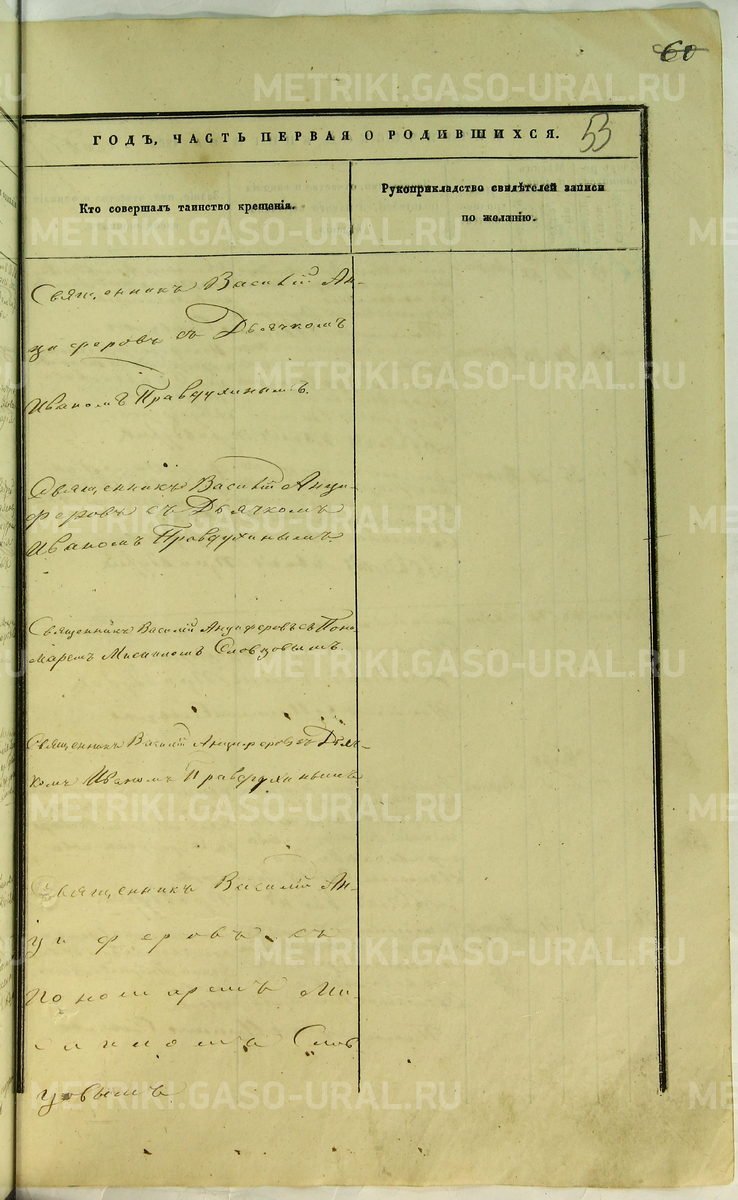 60
ГОДЪ, ЧАСТЬ ПЕРВАЯ О РОДИВШИХСЯ.
53
Кто совершалъ таинство крещенія.
Рукоприкладство свидѣтелей записи
по желанію.
Священникъ Василій Ан-
циферовъ съ Дьячкомъ
Иваномъ Правдухинымъ.
Священникъ Василій Анци-
феровъ съ Дьячкомъ
Иваномъ Правдухинымъ.
Священникъ Василій Анциферовъ съ Поно-
маремъ Мисаиломъ Словцовымъ.
Священникъ Василій Анциферовъ съ Дьяч-
комъ Иваномъ Правдухинымъ
Священникъ Василій Ан-
циферовъ съ
Пономаремъ Ми-
Слов
цовымъ.
METRIKI.GASO-URAL.RU